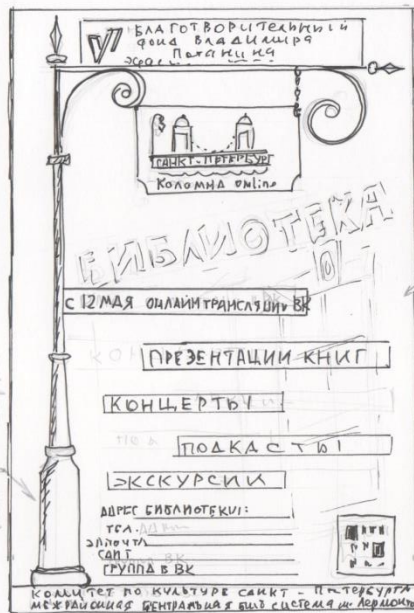 БЛАГОТВОРИТЕЛЬНЫЙ
ФОНД ВЛАДИМИРА
ПОТАНИНА
САНКТ-ПЕТЕРБУРГ
КОЛОМНА online
БИБЛИОТЕКА
С 12 МАЯ ОНЛАЙН ТРАНСЛЯЦИИ ВК
ПРЕЗЕНТАЦИИ КНИГ
КОНЦЕРТЫ
ПОДКАСТЫ
ЭКСКУРСИИ
АДРЕС БИБЛИОТЕКИ:
ТЕЛ.
ЭЛ ПОЧТА
САЙТ
ГРУППА В ВК
КОМИТЕТ ПО КУЛЬТУРЕ САНКТ-ПЕТЕРБУРГА
МЕЖРАЙОННАЯ ЦЕНТРАЛЬНАЯ БИБ СИСТЕМА им Лермонт